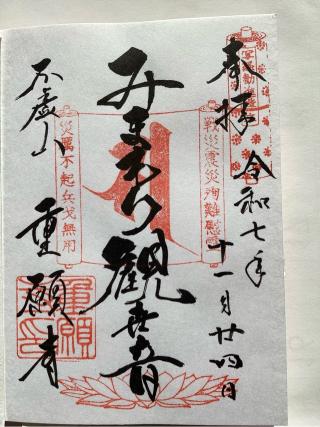 奉拝 令和七年
十一月廿四日
みまもり観世音
不虚山 重願寺
戦災震災殉難慰霊
災厲不起兵戈無用
重願